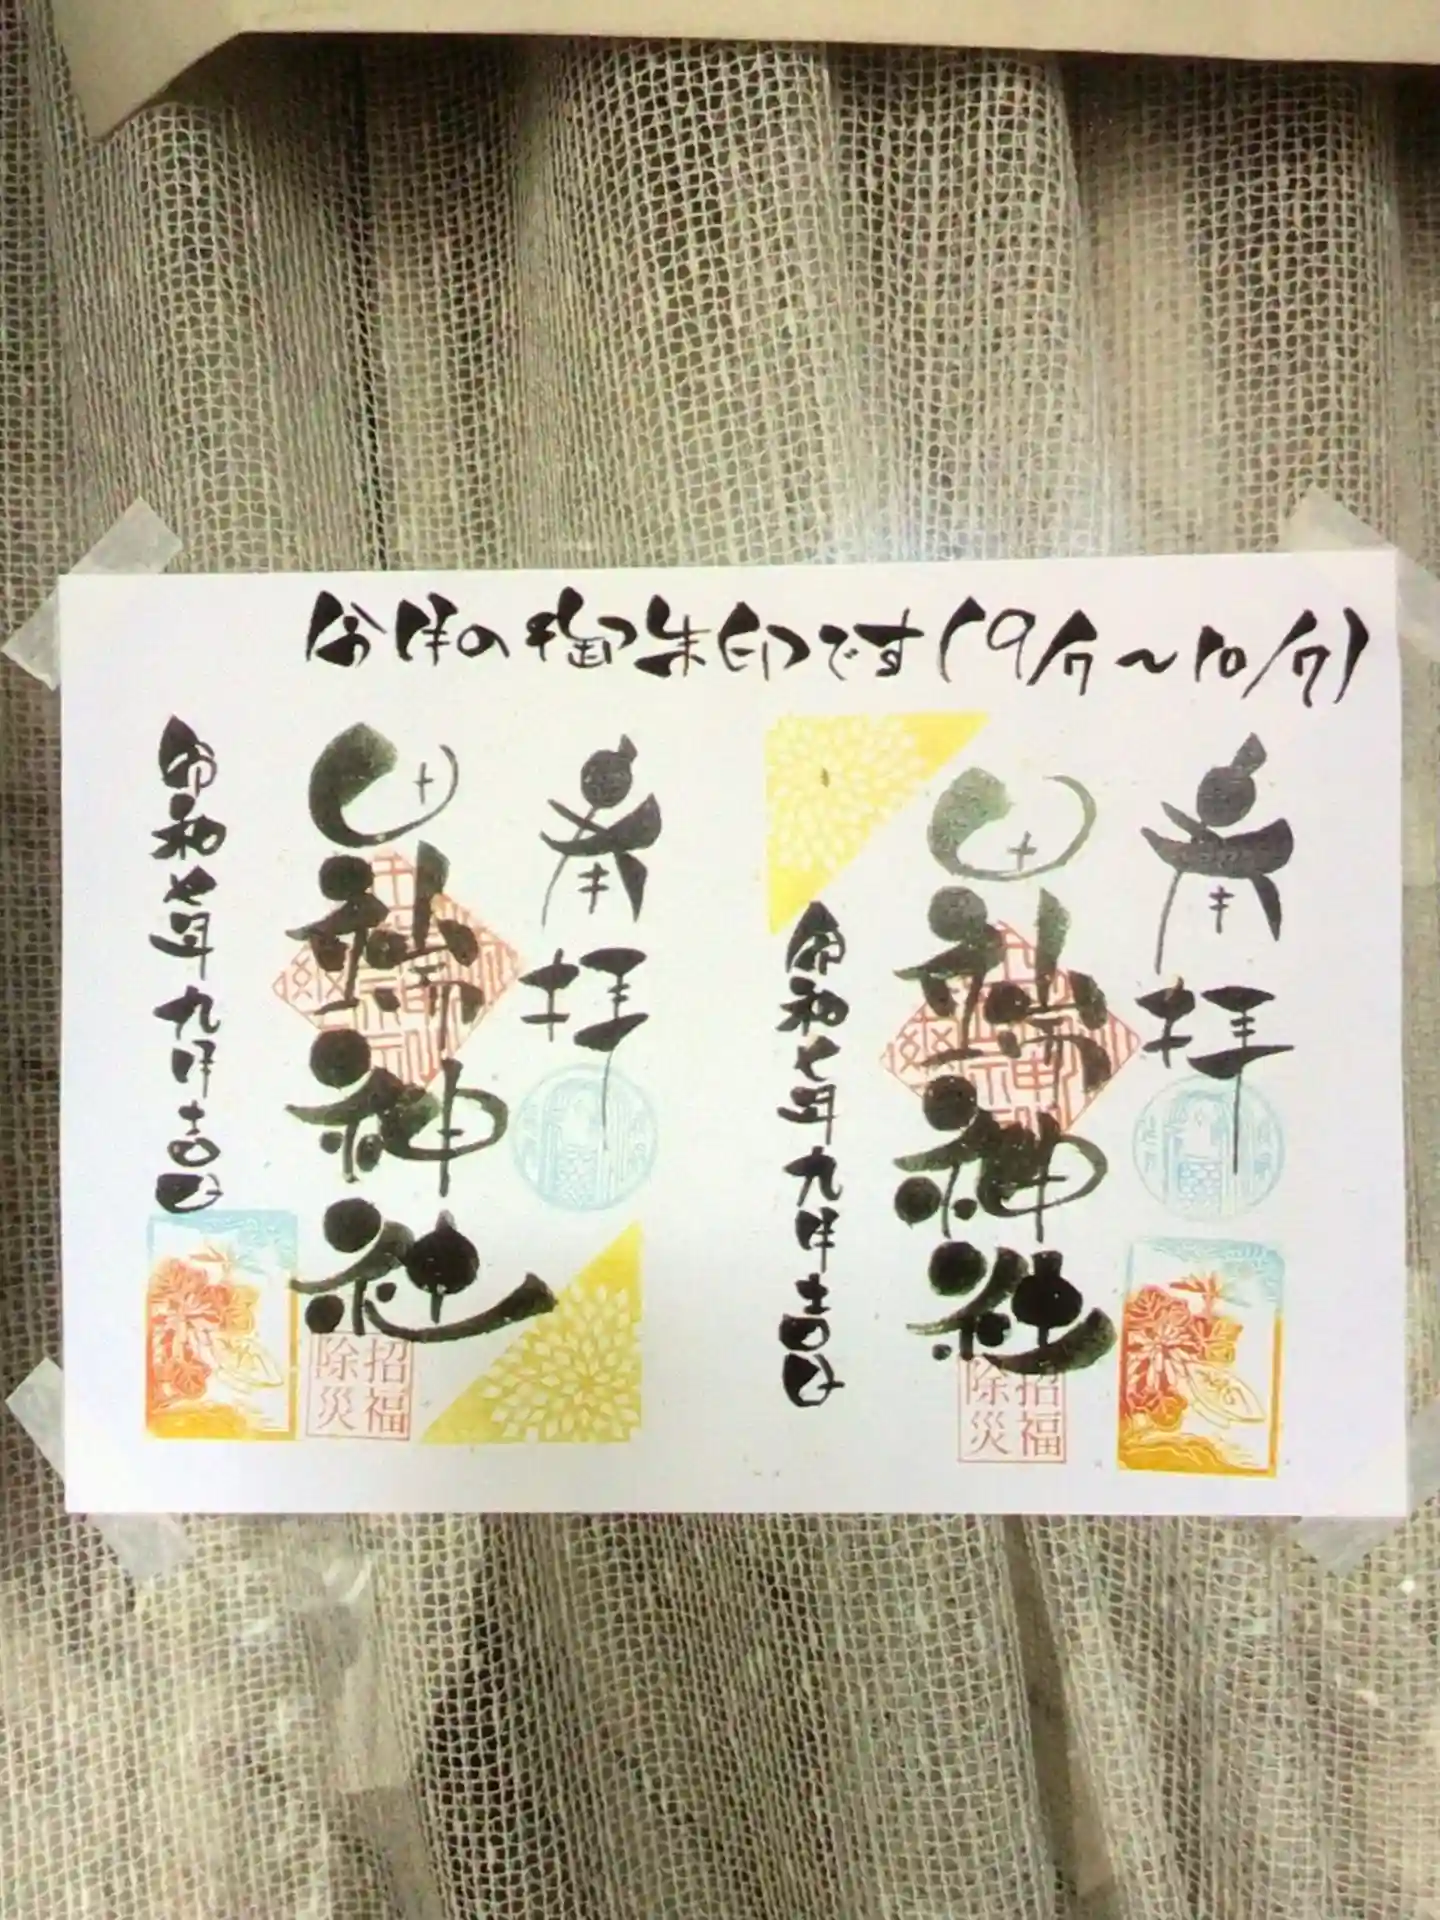 今月の御朱印です(9/7〜10/7)
奉拝
山瑞神社
招福
除災
令和七年九月吉日
奉拝
山瑞神社
招福
除災
令和七年九月吉日